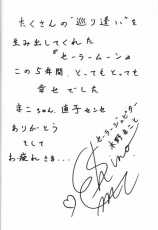 たくさんの"巡り逢い"を
生み出してくれた
『セーラームーン』
この5年間、とってもとっても
幸せでした
まこちゃん、直子センセ
ありがとう
そして
お疲れさま…
セーラージュピター
木野まこと